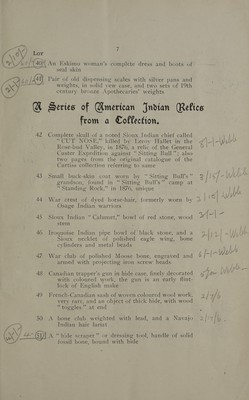 7
Lot
An Eskimo woman's complete dress and boots of
seal skin
Pair of old dispensing scales with silver pans and
weights, in solid yew case, and two sets of 19th
century bronze Apothecaries' weights
A Series of American Indian Relics
from a Collection.
42 Complete skull of a noted Sioux Indian chief called
"CUT NOSE," killed by Lieut Haller in the
Rose-bud Valley, in 1876, a relic of the General
Custer Expedition against "Sitting Bull"; and
two pages from the original catalogue of the
Curtiss collection referring to same
43 Small buck-skin coat worn by "Sitting Bull's"
grandson, found in "Sitting Bull's" camp at
"Standing Rock," in 1876, unique
44 War crest of dyed horse-hair, formerly worn by
Osage Indian warriors
45 Sioux Indian "Calumet," bowl of red stone, wood
stem
46 Iroquoise Indian pipe bowl of black stone, and a
Sioux necklet of polished eagle wing, bone
cylinders and metal beads
47 War club of polished Moose bone, engraved and
armed with projecting iron screw heads
48 Canadian trapper's gun in hide case, finely decorated
with coloured work, the gun is an early flint-
lock of English make
49 French-Canadian sash of woven coloured wood work,
very rare, and an object of thick hide, with wood
"toggles" at end
50 A bone club weighted with lead, and a Navajo
Indian hair lariat
A "hide scraper" or dressing tool, handle of solid
fossil bone, bound with hide